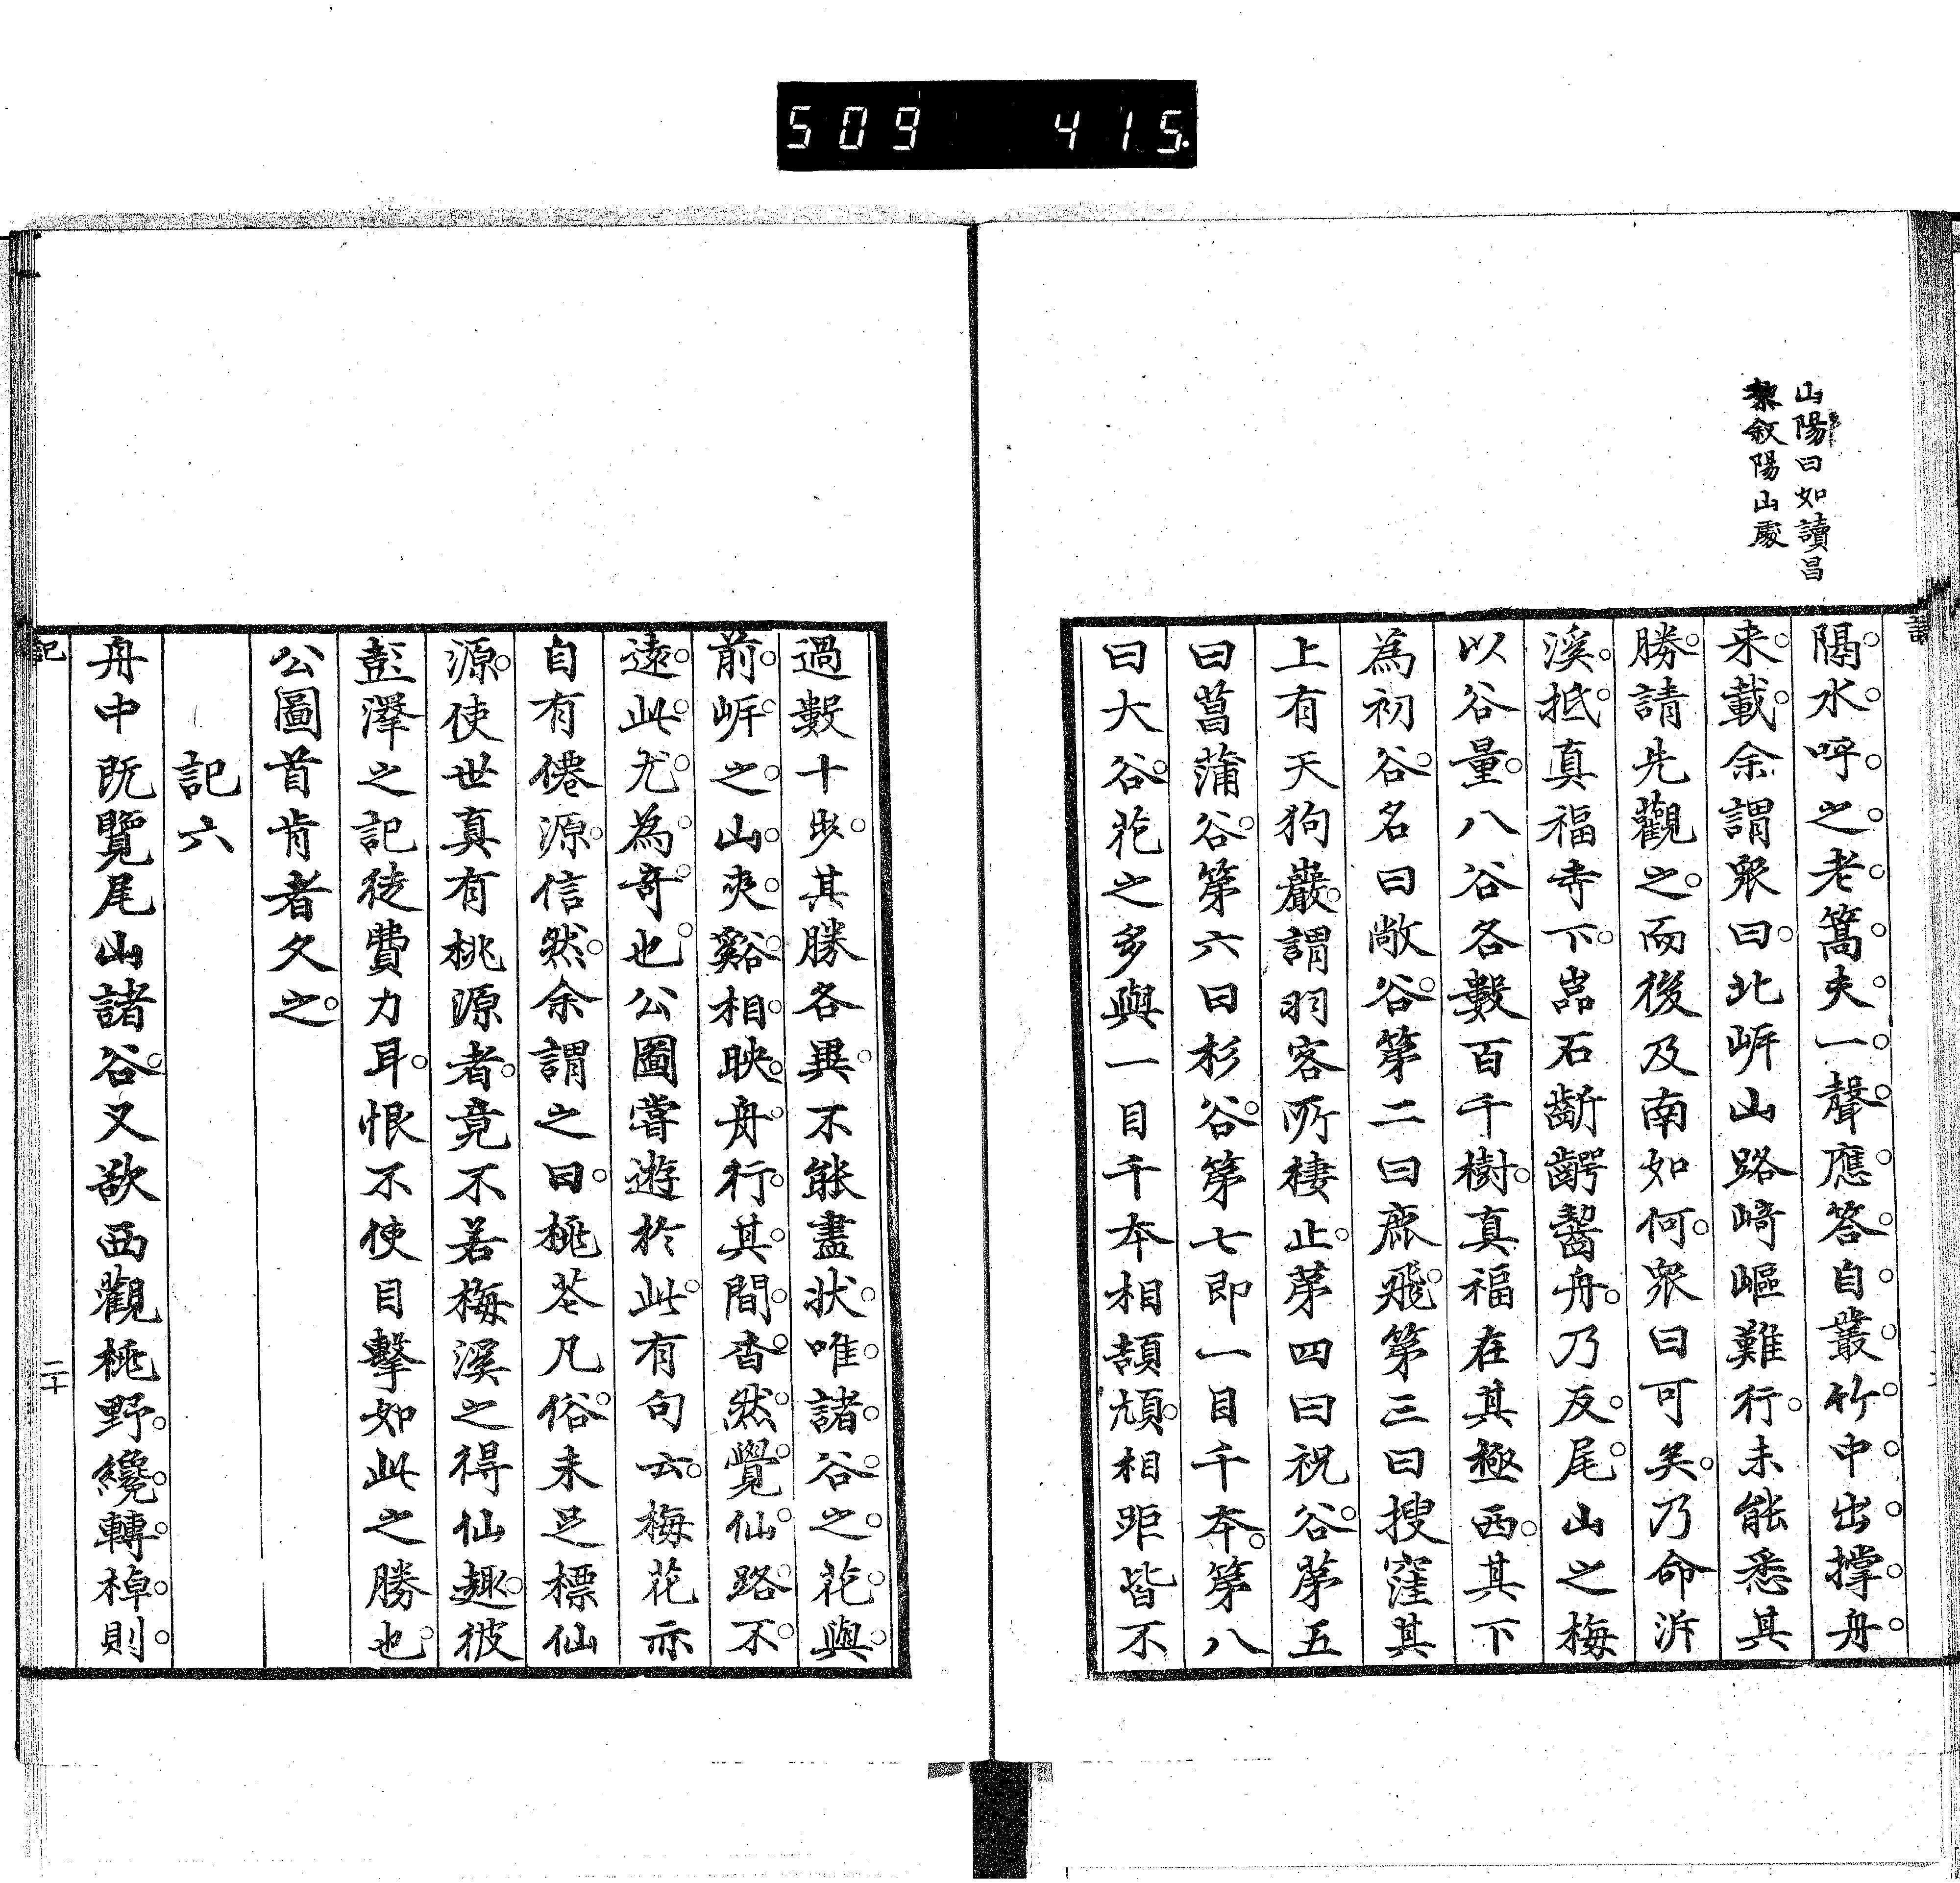 509 415.
山陽曰如讀昌
黎叙陽山處
隔水呼之老篙夫一聲應答自叢竹中出撑舟
来載余謂眾曰北岸山路崎嶇難行未能悉其
勝請先觀之而後及南如何眾曰可矣乃命泝
溪抵真福寺下嵓石齗齶齧舟乃反尾山之梅
以谷量八谷各數百千樹真福在其極西其下
為初谷名曰敞谷第二曰鹿飛第三曰搜窪其
上有天狗巖謂羽客所棲止第四曰祝谷第五
曰菖蒲谷第六曰杉谷第七即一目千本第八
曰大谷花之多與一目千本相頡頏相距皆不
過數十步其勝各異不能盡状唯諸谷之花與
前岸之山夾谿相映舟行其間杳然覺仙路不
遠此尤為奇也公圖嘗遊於此有句云梅花亦
自有僊源信然余謂之曰桃花凡俗未足標仙
源使世真有桃源者竟不若梅溪之得仙趣彼
彭澤之記徒費力耳恨不使目擊如此之勝也
公圖首肯者久之
記六
舟中既覽尾山諸谷又欲西觀桃野纔轉棹則
記
二十